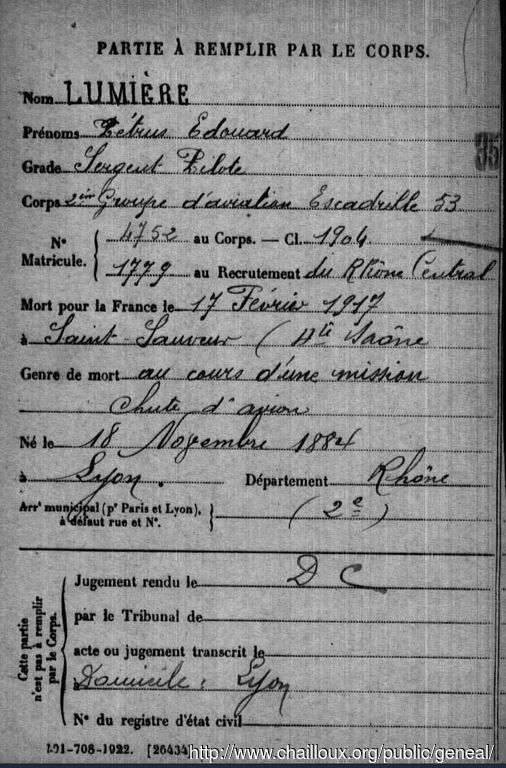 PARTIE À REMPLIR PAR LE CORPS.
Nom LUMIÈRE
Prénoms Pétrus Edouard
Grade Sergent Pilote
Corps 2ème Groupe d'aviation Escadrille 53
N° Matricule. { 4752 au Corps. — Cl. 1904
1779 au Recrutement du Rhône Central
Mort pour la France le 17 Février 1917
à Saint-Sauveur (Hte Saône
Genre de mort au cours d'une mission
chute d'avion
Né le 18 Novembre 1884
à Lyon. Département Rhône
Arrt municipal (pr Paris et Lyon), à défaut rue et N°. } (2e)
Cette partie n'est pas à remplir par le Corps.
Jugement rendu le D C
par le Tribunal de
acte ou jugement transcrit le
à Domicile: Lyon
N° du registre d'état civil
101-708-1922. [26434]
http://www.chailloux.org/public/geneal/